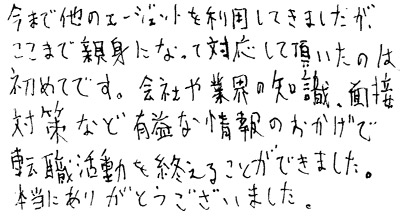 今まで他のエージェントを利用してきましたが、
ここまで親身になって対応して頂いたのは
初めてです。会社や業界の知識、面接
対策など有益な情報のおかげで
転職活動を終えることができました。
本当にありがとうございました。